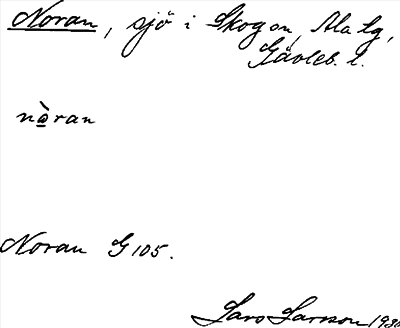 Noran, sjö i Skogon, Ala lg,
Gävleb. l.
nòran
Noran G 105.
Lars Larsson 1930